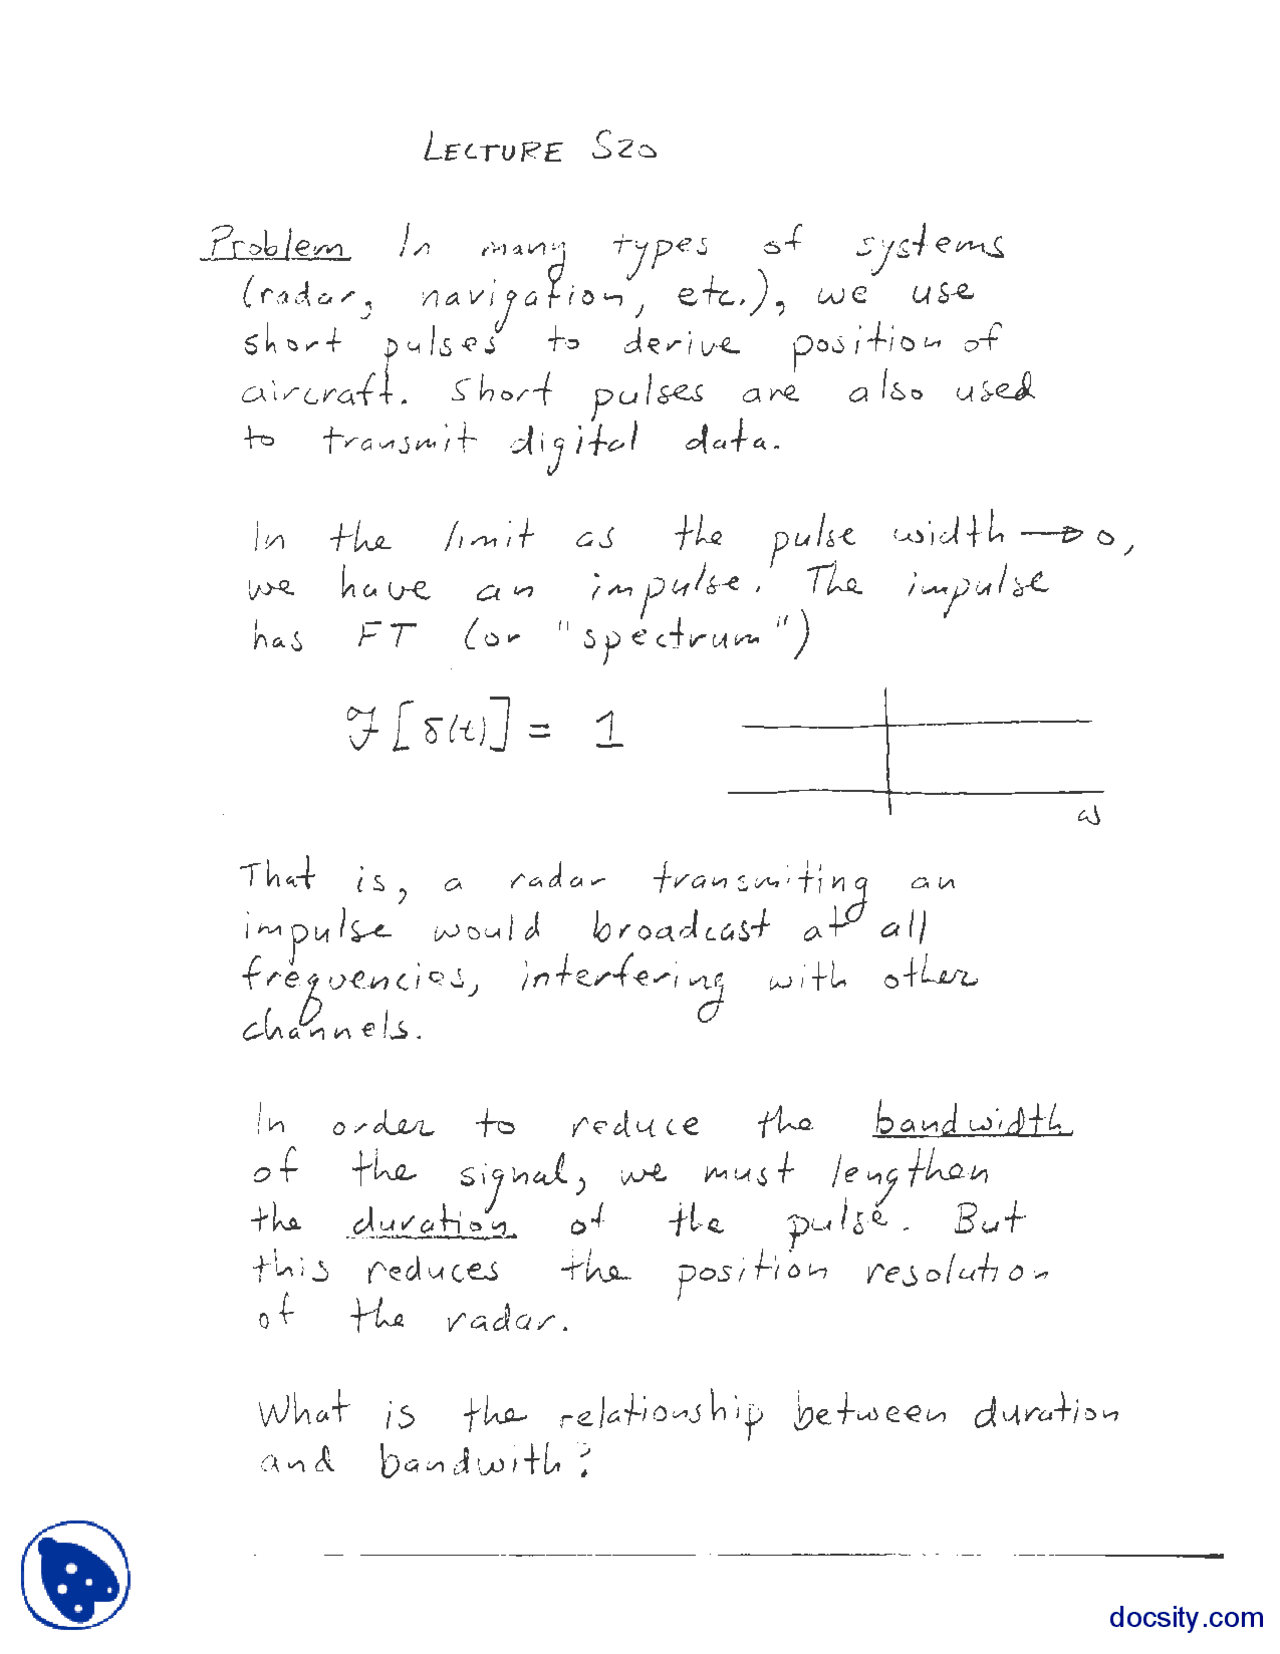 LECTURE S20
Problem In many types of systems
(radar, navigation, etc.), we use
short pulses to derive position of
aircraft. Short pulses are also used
to transmit digital data.
In the limit as the pulse width → 0,
we have an impulse. The impulse
has FT (or "spectrum")
ℱ[δ(t)] = 1
ω
That is, a radar transmiting an
impulse would broadcast at all
frequencies, interfering with other
channels.
In order to reduce the bandwidth
of the signal, we must lengthen
the duration of the pulse. But
this reduces the position resolution
of the radar.
What is the relationship between duration
and bandwith?
docsity.com